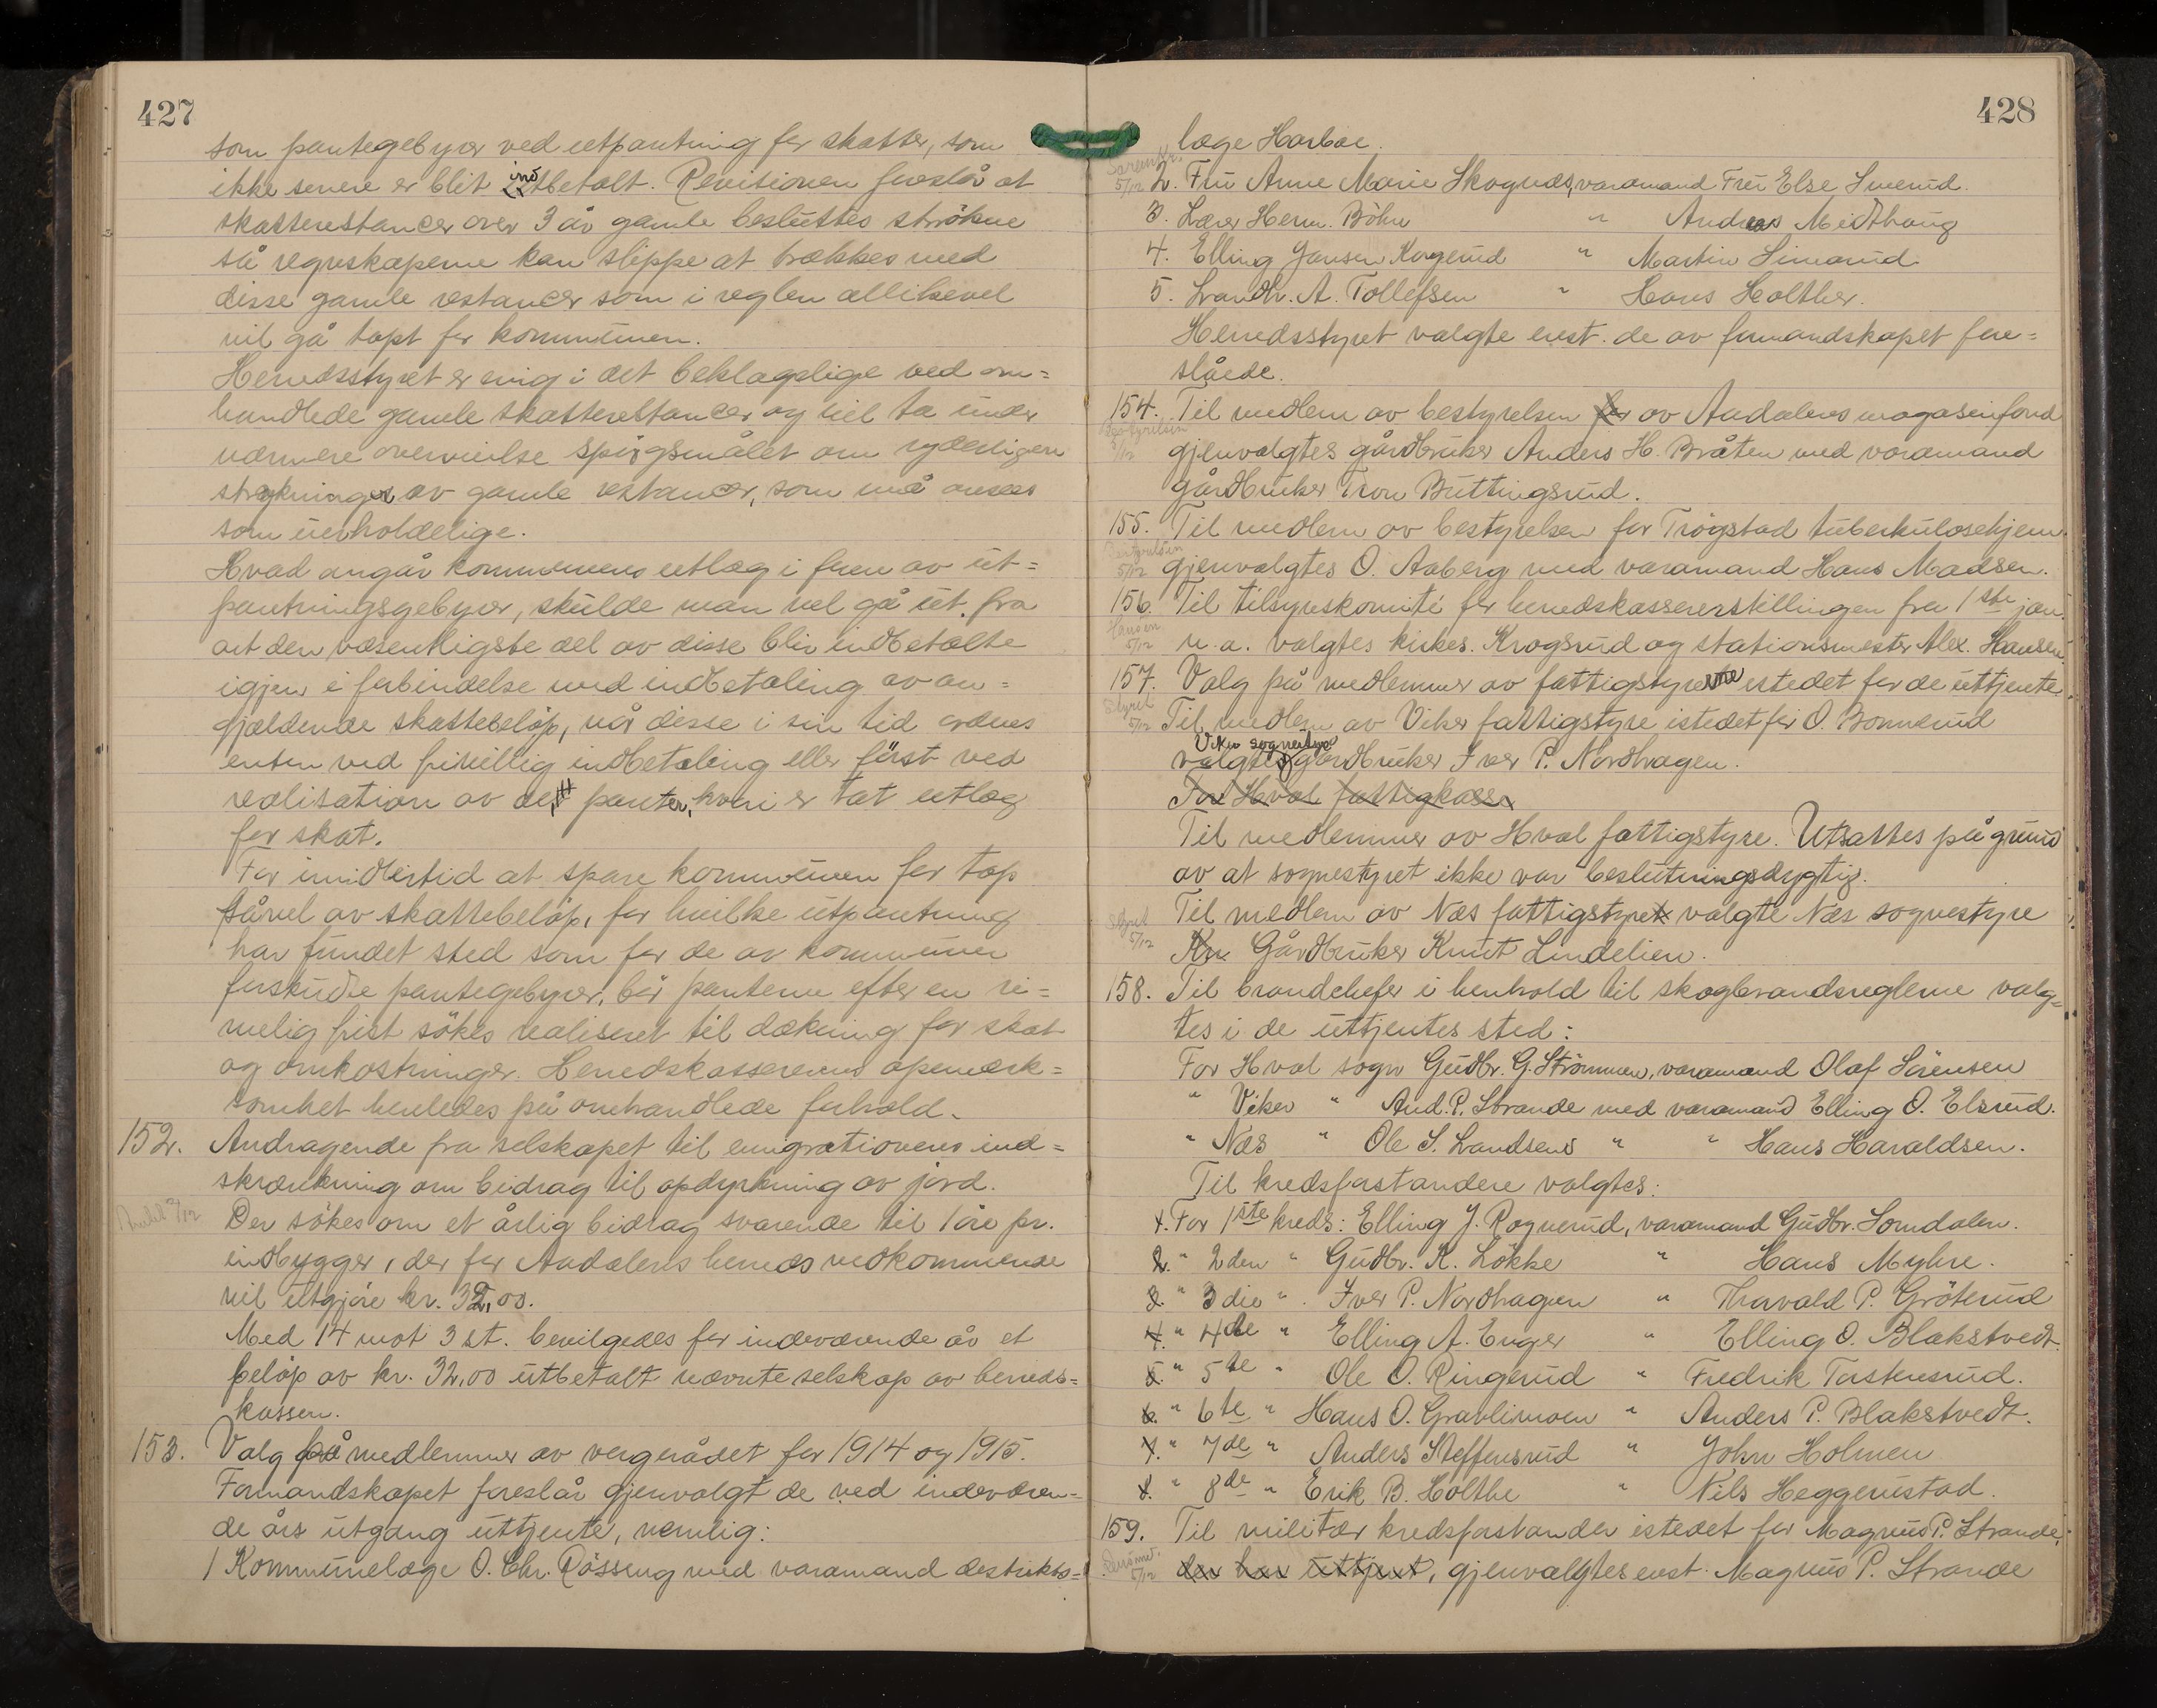 427
som pantegebyrer ved utpantning for skatter, som
ikke senere er blit indbetalt. Revisionen foreslår at
skatterestancer over 3 år gamle besluttes strökne
så regnskaperne kan slippe at trækkes med
disse gamle restancer som i reglen allikevel
vil gå tapt for kommunen.
Herredsstyret er enig i det beklagelige ved om=
handlede gamle skatterestancer og vil ta under
nærmere overveielse spörgsmålet om yderligere
strykninger av gamle restancer, som må ansees
som uerholdelige.
Hvad angår kommunens utlæg i form av ut=
pantningsgebyrer, skulde man vel gå ut fra
at den væsentligste del av disse blir indbetalte
igjen i forbindelse med indbetaling av an=
gjældende skattebelöp, når disse i sin tid ordnes
enten ved frivillig indbetaling eller først ved
realisation av det panter, hvori er tat utlæg
for skat.
For imidlertid at spare kommunen for tap
såvel av skattebelöp, for hvilke utpantning
har fundet sted som for de av kommunen
forskudte pantegebyrer, bör panterne efter en ri=
melig frist sökes realiseret til dækning for skat
og omkostninger. Herredskassererens opmerk=
somhet henledes på omhandlede forhold.
152. Andragende fra selskapet til emigrationens ind=
skrænkning om bidrag til opdyrkning av jord.
Der sökes om et årlig bidrag svarende til 1 öre pr.
indbygger, der for Aadalens herreds vedkommende
vil utgjöre kr. 32,00.
Med 14 mot 3 st. bevilgedes for indeværende år et
belöp av kr. 32,00 utbetalt nævnte selskap av herreds=
kassen.
153. Valg på medlemmer av vergerådet for 1914 og 1915.
Formandskapet foreslår gjenvalgt de ved indeværen=
de års utgang uttjente, nemlig:
1 Kommunelæge O. Chr. Rösseng med varamand destrikts=
428
læge Harboe.
5/12 2. Fru Anne Marie Skognes, varamand Fru Else Smerud.
3. Lærer Herm. Böhn " Andreas Midthaug
4. Elling Jansen Kongerud " Martin Simarud.
5. Landh. A. Tollefsen " Hans Holther.
Herredsstyret valgte enst. de av formandskapet fore=
slåede.
154. Til medlem av bestyrelsen for av Aadalens magasinfond
Bestyrelsen 5/12
gjenvalgtes gårdbruker Anders H. Bråten med varamand
gårdbruker Tron Buttingsrud.
155. Til medlem av bestyrelsen for Trögstad tuberkulosehjem
Bestyrelsen 5/12
gjenvalgtes O. Aaberg med varamand Hans Madsen.
156. Til tilsynskomité for herredskassererstillingen fra 1ste jan.
Hansen 5/12
n. a. valgtes kirkes. Krogsrud og stationsmester Alex. Hansen.
157. Valg på medlemmer av fattigstyrerne istedet for de uttjente.
Styret 5/12
Til medlem av Viker fattigstyre istedet for O. Bonnerud
Viker sognestyre
valgtes gårdbruker Iver P. Nordhagen.
For Hval fattigkasse
Til medlemmer av Hval fattigstyre. Utsattes på grund
av at sognestyret ikke var beslutningsdygtig.
Styret 5/12
Til medlem av Næs fattigstyret valgte Næs sognestyre
Kn. Gårdbruker Knut Lindelien.
158. Til brandchefer i henhold til skogbrandsreglerne valg=
tes i de uttjentes sted:
For Hval sogn Gudbr. G. Strömmen, varamand Olaf Sörensen
" Viker " And. P. Strande med varamand Elling O. Elsrud.
" Næs " Ole S. Landsend " " Hans Haraldsen.
Til kredsforstandere valgtes:
1. For 1ste kreds: Elling J. Rognerud, varamand Gudbr. Somdalen.
2. " 2den " Gudbr. K. Lökke " Hans Myhre.
3. " 3die " Iver P. Nordhagen " Thorvald P. Gröterud
4. " 4de " Elling A. Enger " Elling O. Blakstvedt.
5. " 5te " Ole O. Ringerud " Fredrik Tostensrud.
6. " 6te " Hans O. Gravlimoen " Anders P. Blakstvedt.
7. " 7de " Anders Steffensrud " John Holmen
8. " 8de " Erik B. Holthe " Nils Heggerustad.
159. Til militær kredsforstander istedet for Magnus P. Strande,
5/12
der har uttjent, gjenvalgtes enst. Magnus P. Strande